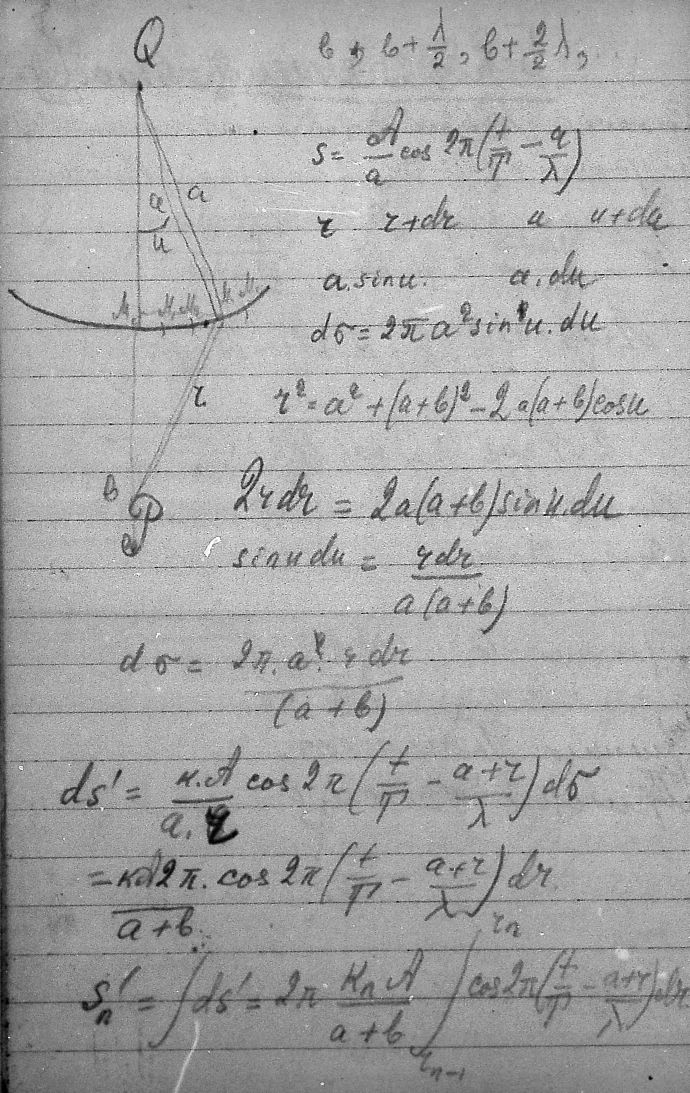 Q
в, в+λ/2, в+2/2 λ,
s = A/a cos 2π(t/T − a/λ)
r r+dr u u+du
a
u
a.sinu. a.du
M₀ M₁ M₂
dσ = 2πa² sin u.du
r
r² = a² + (a+в)² − 2a(a+в)cosu
в
P
2rdr = 2a(a+в)sinu.du
sinudu = rdr/a(a+в)
dσ = 2π.a.rdr/(a+в)
ds' = к.A/a.r cos 2π(t/T − a+r/λ)dσ
= кA2π/a+в . cos 2π(t/T − a+r/λ)dr.
sₙ' = ∫ds' = 2π кₙA/a+в ∫ rₙ₋₁ rₙ cos2π(t/T − a+r/λ)dr